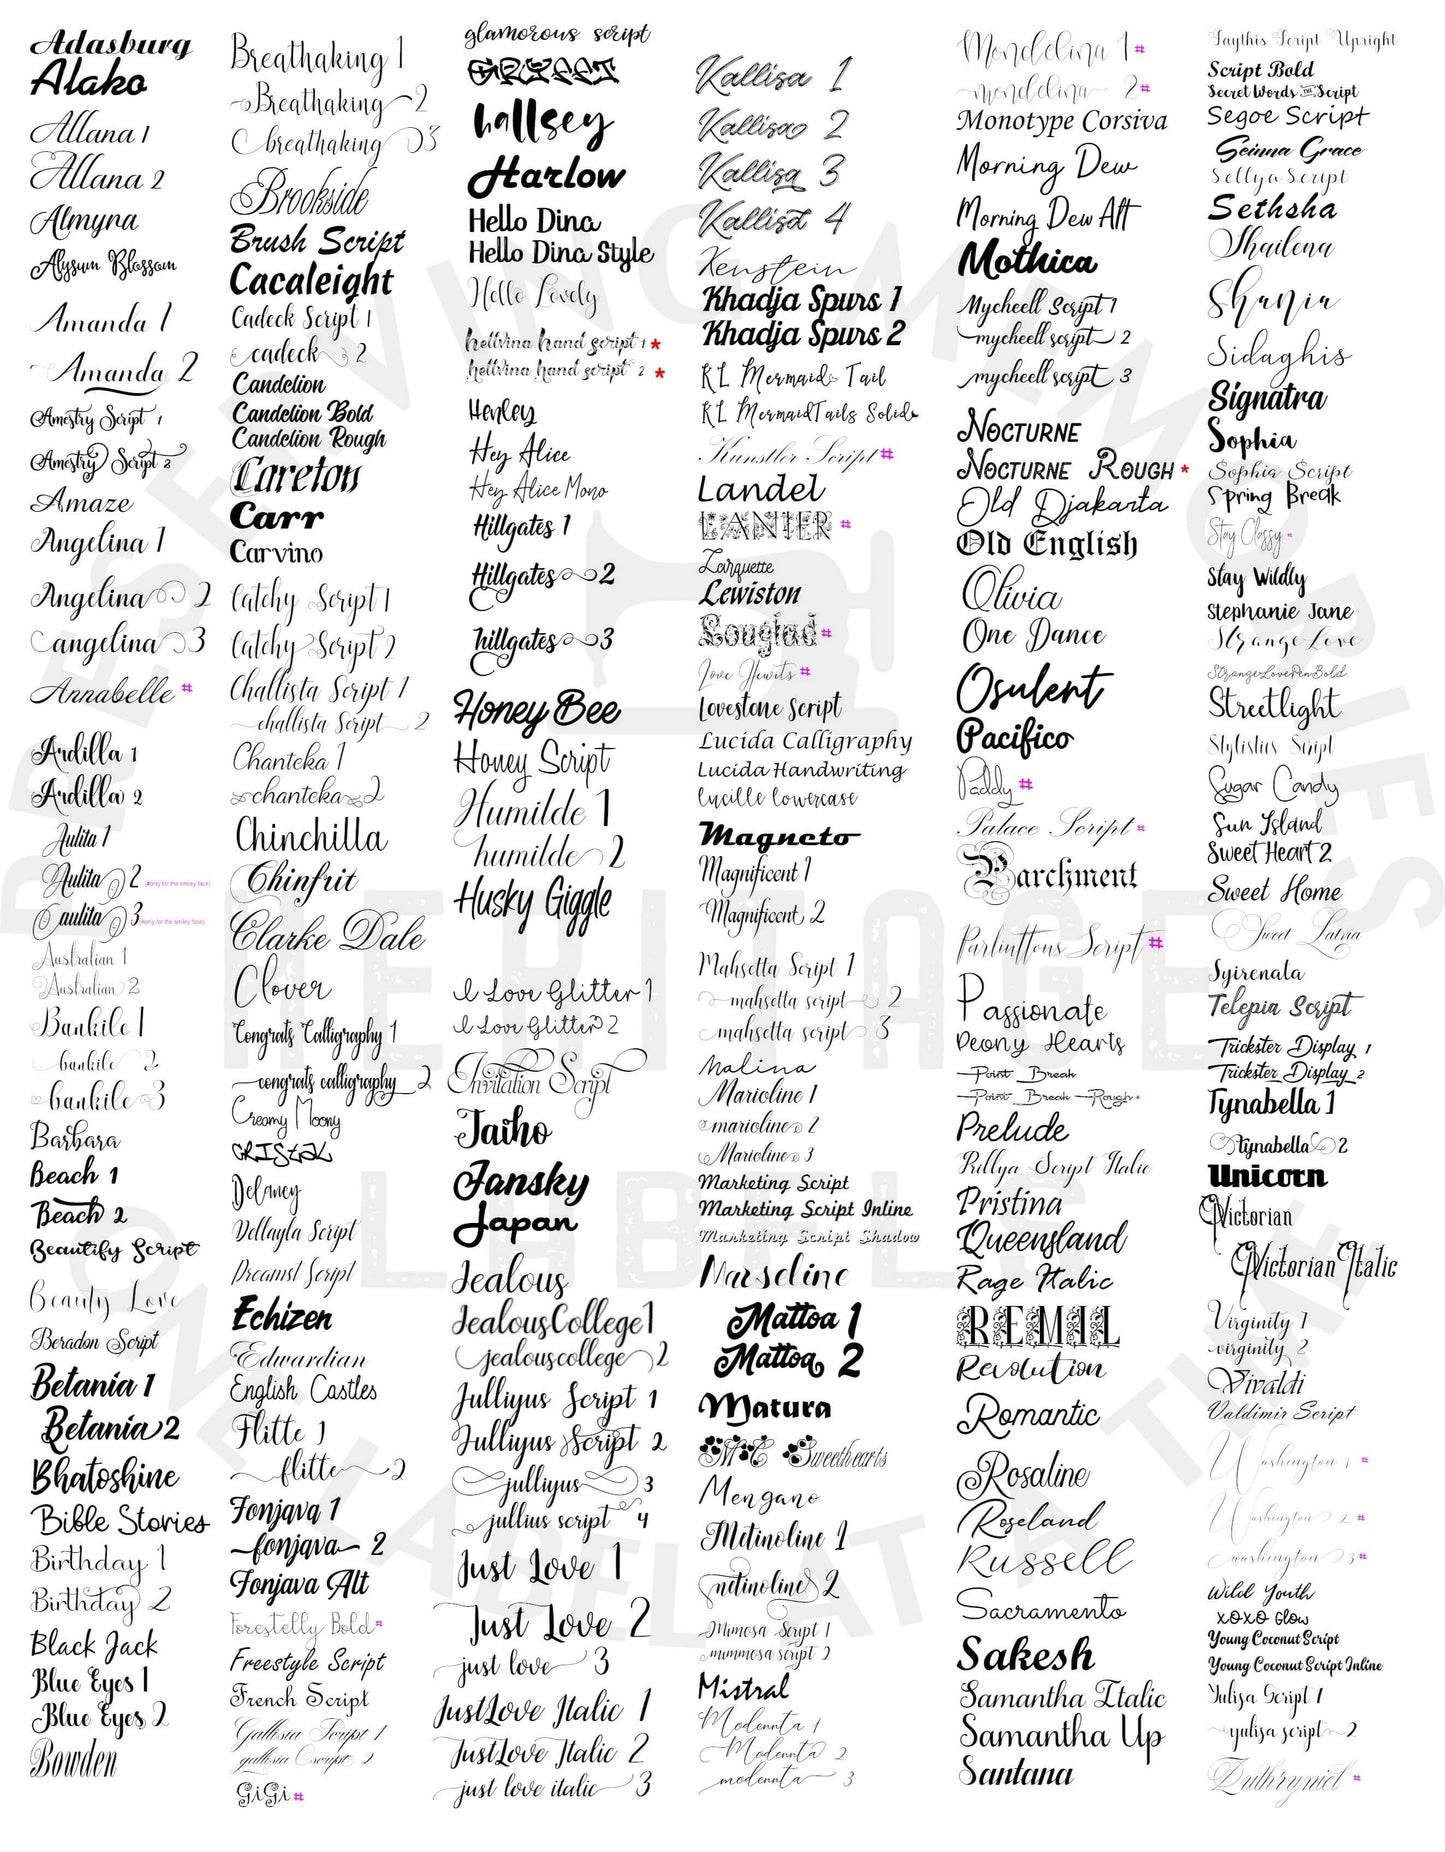 Adasburg
Alako
Allana 1
Allana 2
Almyna
Alysum Blossom
Amanda 1
Amanda 2
Amestry Script 1
Amestry Script 2
Amaze
Angelina 1
Angelina 2
angelina 3
Annabelle #
Ardilla 1
Ardilla 2
Aulita 1
Aulita 2 (#only for the smiley face)
aulita 3 (#only for the smiley face)
Australian 1
Australian 2
Bankile 1
bankile 2
bankile 3
Barbara
Beach 1
Beach 2
Beautify Script
Beauty Love
Beradon Script
Betania 1
Betania 2
Bhatoshine
Bible Stories
Birthday 1
Birthday 2
Black Jack
Blue Eyes 1
Blue Eyes 2
Bowden
Breathaking 1
Breathaking 2
breathaking 3
Brookside
Brush Script
Cacaleight
Cadeck Script 1
cadeck 2
Candelion
Candelion Bold
Candelion Rough
Careton
Carr
Carvino
Catchy Script 1
Catchy Script 2
Challista Script 1
challista Script 2
Chanteka 1
chanteka 2
Chinchilla
Chinfrit
Clarke Dale
Clover
Congrats Calligraphy 1
congrats calligraphy 2
Creamy Moony
CRISTAL
Delaney
Dellayla Script
Dreamst Script
Echizen
Edwardian
English Castles
Flitte 1
flitte 2
Fonjava 1
fonjava 2
Fonjava Alt
Forestelly Bold #
Freestyle Script
French Script
Gallisia Script 1
gallisia script 2
GiGi #
glamorous script
GRAFFTI
hallsey
Harlow
Hello Dina
Hello Dina Style
Hello Lovely
hellvina hand script 1 *
hellvina hand script 2 *
Henley
Hey Alice
Hey Alice Mono
Hillgates 1
Hillgates 2
hillgates 3
Honey Bee
Honey Script
Humilde 1
humilde 2
Husky Giggle
I Love Glitter 1
I Love Glitter 2
Invitation Script
Jaiho
Jansky
Japan
Jealous
JealousCollege 1
jealouscollege 2
Julliyus Script 1
Julliyus Script 2
julliyus 3
jullius script 4
Just Love 1
Just Love 2
just love 3
JustLove Italic 1
JustLove Italic 2
just love italic 3
Kallisa 1
Kallisa 2
Kallisa 3
Kallisa 4
Kenstein
Khadja Spurs 1
Khadja Spurs 2
KL Mermaid Tail
KL MermaidTails Solid
Kunstler Script #
Landel
LANIER #
Larquette
Lewiston
Louglad #
Love Hewits #
Lovestone Script
Lucida Calligraphy
Lucida Handwriting
lucille lowercase
Magneto
Magnificent 1
Magnificent 2
Mahsetta Script 1
mahsetta script 2
mahsetta script 3
Malina
Marioline 1
marioline 2
Marioline 3
Marketing Script
Marketing Script Inline
Marketing Script Shadow
Marseline
Mattoa 1
Mattoa 2
Matura
MC Sweethearts
Mengano
Metinoline 1
metinoline 2
Mimosa Script 1
mimmosa script 2
Mistral
Modennta 1
Modennta 2
modennta 3
Mondelina 1 #
mondelina 2 #
Monotype Corsiva
Morning Dew
Morning Dew Alt
Mothica
Mycheell Script 1
mycheell script 2
mycheell script 3
NOCTURNE
NOCTURNE ROUGH *
Old Djakarta
Old English
Olivia
One Dance
Osulent
Pacifico
Paddy #
Palace Script #
Parchment
Parlinttons Script #
Passionate
Peony Hearts
Point Break
Point Break Rough *
Prelude
Rellya Script Italic
Pristina
Queensland
Rage Italic
REMIL
Revolution
Romantic
Rosaline
Roseland
Russell
Sacramento
Sakesh
Samantha Italic
Samantha Up
Santana
Saythis Script Upright
Script Bold
Secret Words THE Script
Segoe Script
Seinna Grace
Sellya Script
Sethsha
Shailena
Shania
Sidaghis
Signatra
Sophia
Sophia Script
Spring Break
Stay Classy #
Stay Wildly
Stephanie Jane
StrangeLove
StrangeLovePenBold
Streetlight
Stylistics Script
Sugar Candy
Sun Island
Sweet Heart 2
Sweet Home
Sweet Latvia
Syirenata
Telepia Script
Trickster Display 1
Trickster Display 2
Tynabella 1
tynabella 2
Unicorn
Victorian
Victorian Italic
Virginity 1
virginity 2
Vivaldi
Valdimir Script
Washington 1 #
Washington 2 #
washington 3 #
Wild Youth
XOXO Glow
Young Coconut Script
Young Coconut Script Inline
Yulisa Script 1
yulisa script 2
PRESERVING MEMORIES
HERITAGE
LABELS
ONE LABEL AT A TIME